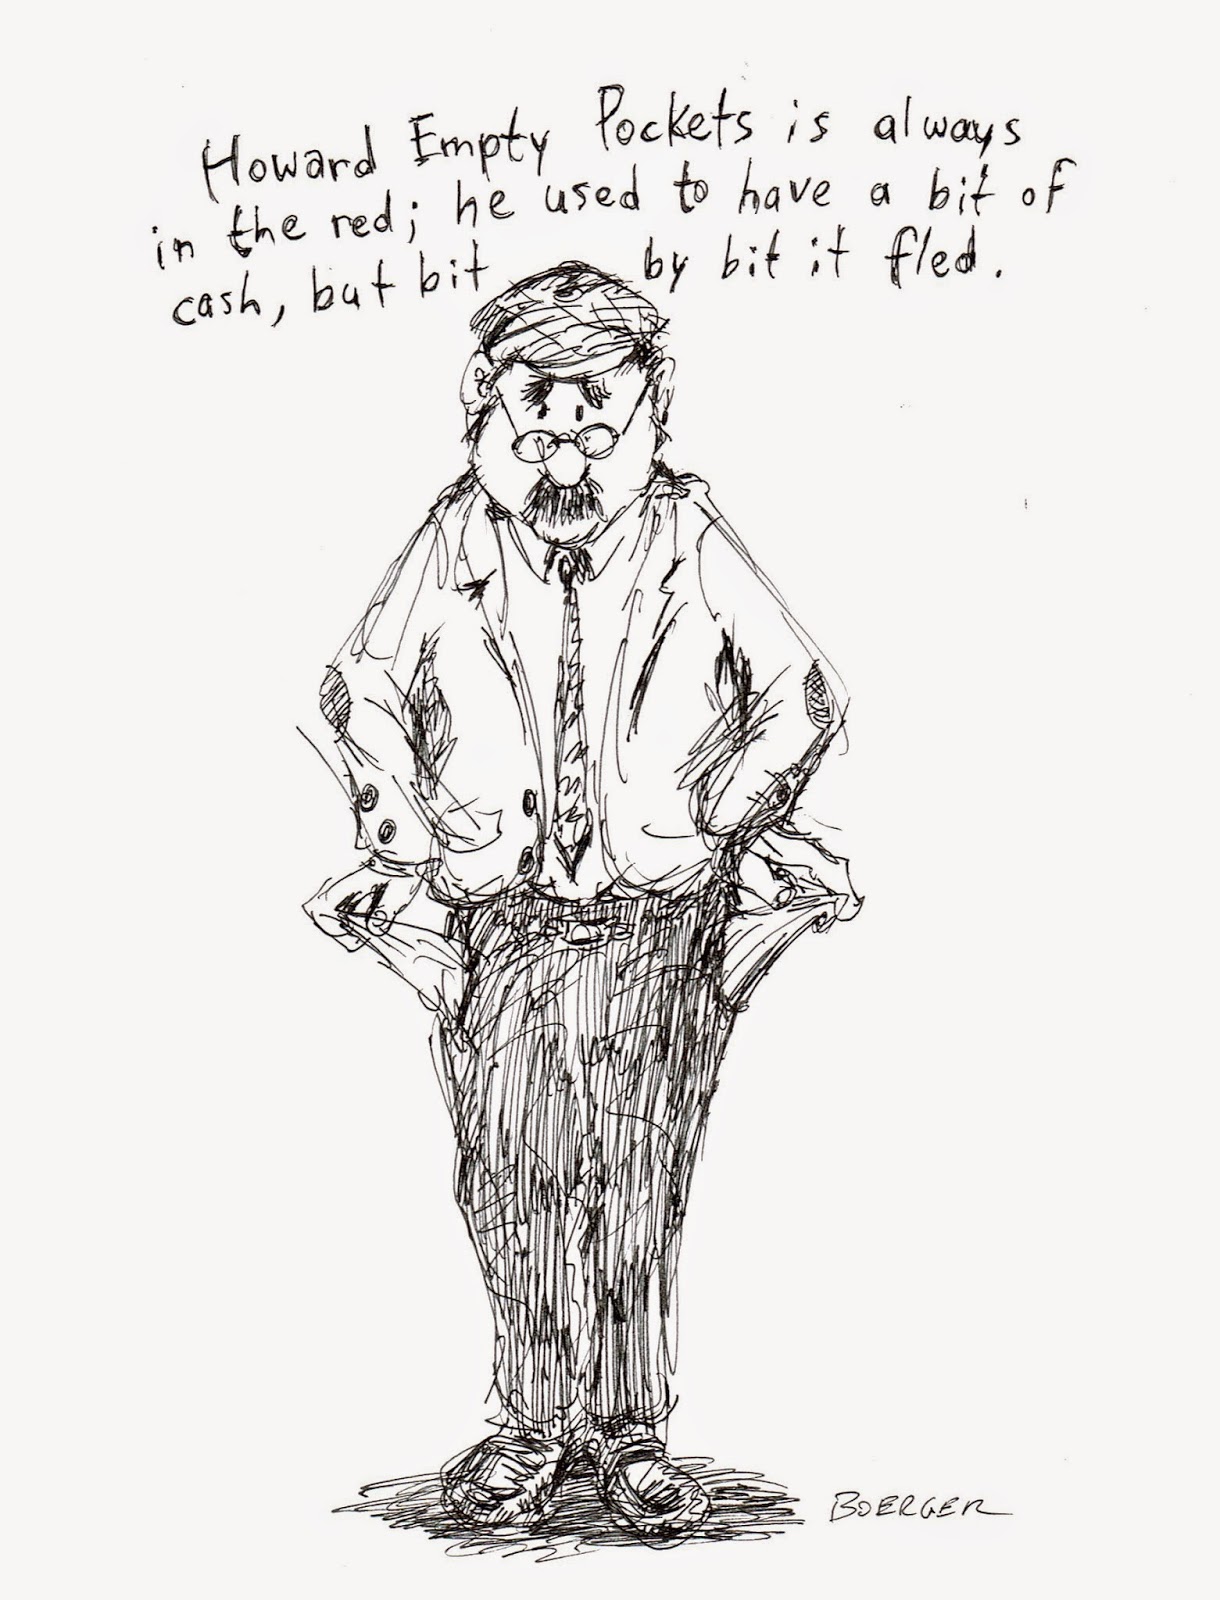 Howard Empty Pockets is always
in the red; he used to have a bit of
cash, but bit by bit it fled.
BOERGER